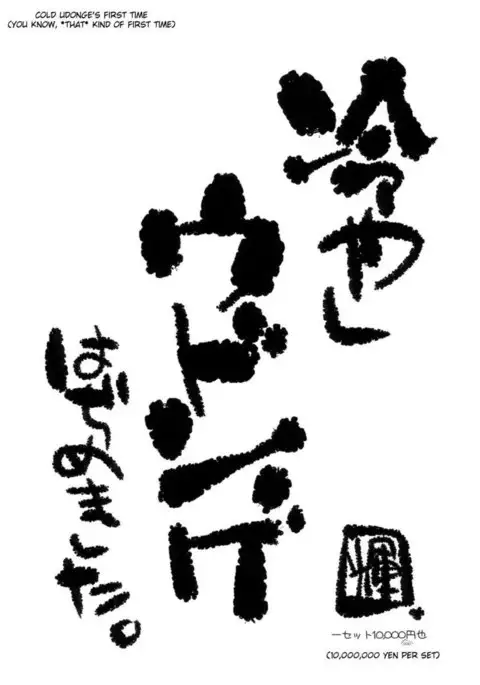 COLD UDONGE'S FIRST TIME
(YOU KNOW, *THAT* KIND OF FIRST TIME)
冷やし
ウドンゲ
はぢめました。
一セット10,000円也
(10,000,000 YEN PER SET)